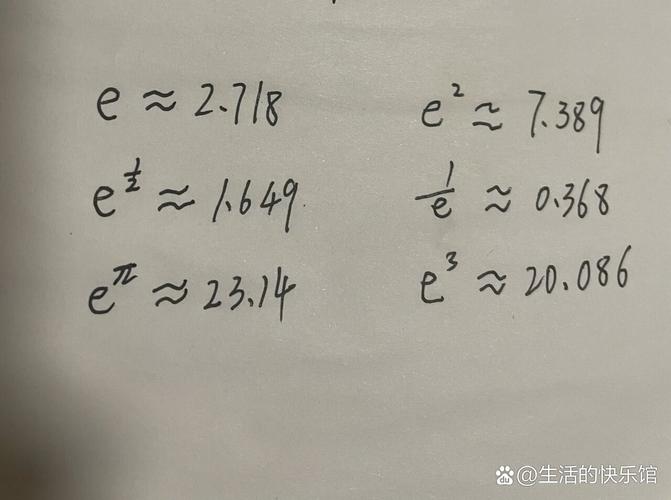 e ≈ 2.718
e² ≈ 7.389
e^{1/2} ≈ 1.649
1/e ≈ 0.368
e^π ≈ 23.14
e³ ≈ 20.086
@生活的快乐馆